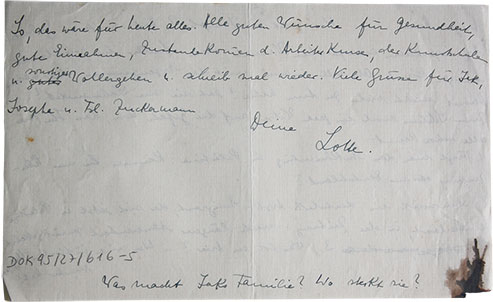 So, das wäre für heute alles. Alle guten Wünsche für Gesundheit,
gute Einnahmen, Zustandekommen d. Arbeits Kurse, der Kunstschulen
u. sonstiges Wollergehen u. schreib mal wieder. Viele Grüsse für Jak,
Josephe u. Frl. Zuckermann
Deine
Lotte.
DOK 95/27/616-5
Was macht Jaks Familie? Wo steckt sie?